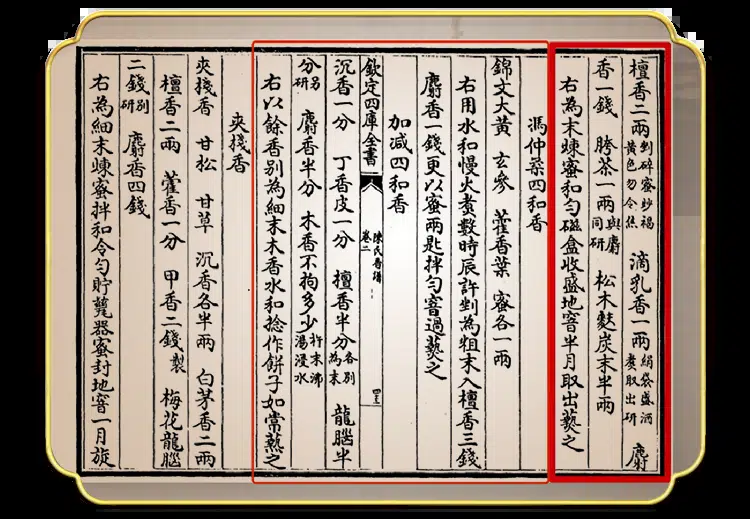 檀香二兩剉碎蜜炒褐黃色勿令焦 滴乳香一兩絹袋盛酒煑取出研 麝
香一錢 胯茶一兩與麝同研 松木麩炭末半兩
右為末煉蜜和勻磁盒收盛地窨半月取出爇之
馮仲柔四和香
錦文大黃 玄參 藿香葉 蜜各一兩
右用水和慢火煑數時辰許剉為粗末入檀香三錢
麝香一錢更以蜜兩匙拌勻窨過爇之
加減四和香
欽定四庫全書
陳氏香譜
卷二
沉香一分 丁香皮一分 檀香半分各别為末 龍腦半
分另研 麝香半分 木香不拘多少杵末沸湯浸水
右以餘香别為細末木香水和捻作餅子如常爇之
夾棧香
夾棧香 甘松 甘草 沉香各半兩 白茅香二兩
檀香二兩 藿香一分 甲香二錢製 梅花龍腦
二錢别研 麝香四錢
右為細末煉蜜拌和令勻貯甆器蜜封地窨一月旋